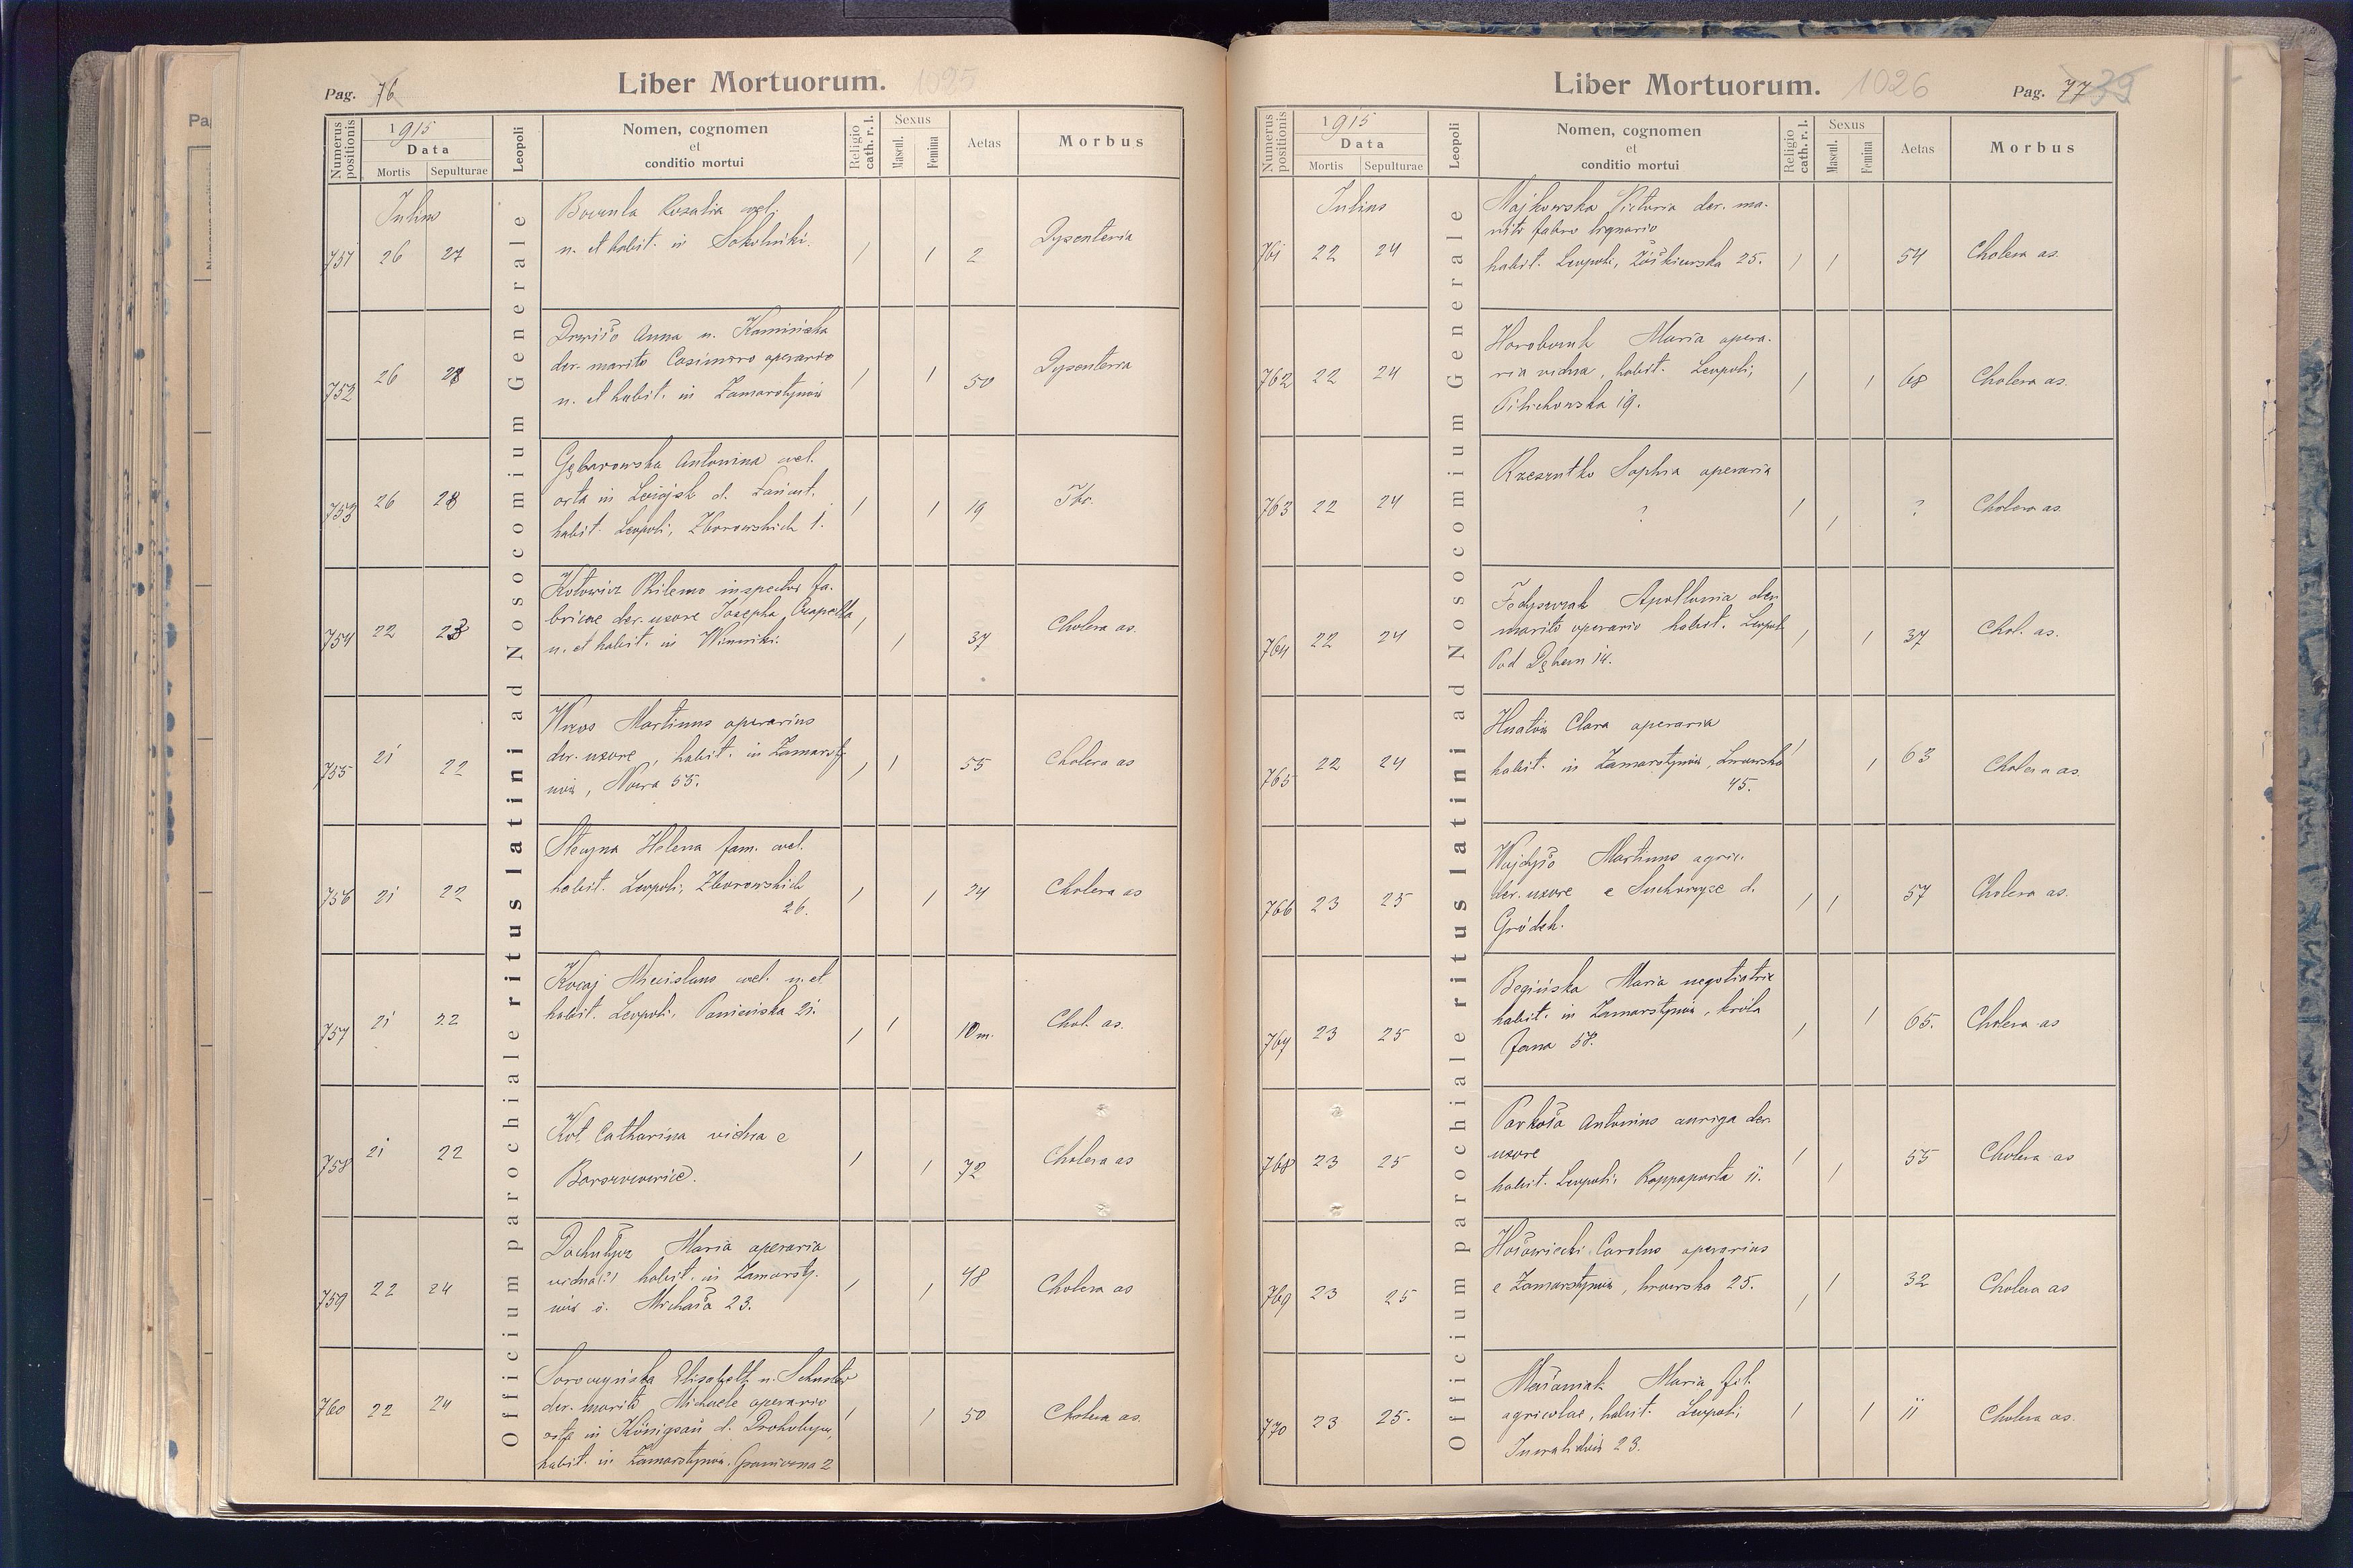 Pag. 76
Liber Mortuorum. 1025
Numerus positionis
1915
Data
Mortis
Sepulturae
Leopoli
Nomen, cognomen
et
conditio mortui
Religio cath. r. l.
Sexus
Mascul.
Femina
Aetas
Morbus
Officium parochiale ritus latini ad Nosocomium Generale
Julius
751 26 27
Rosalia cael.
n. et habit. in Sokolniki.
/ / 2 Dysenteria
752 26 28
Anna n. Kamińska
der. marito Casimiro operario
n. et habit. in Zamarstynów
/ / 50 Dysenteria
753 26 28
Gębarowska Antonina cael.
orta in Leżajsk d. Łańcut.
habit. Leopoli, Zborowskich 1.
/ / 19 Tbc.
754 22 23
Kotowicz Philemo inspector fa-
bricae der. uxore Josepha Czapella
n. et habit. in Winniki.
/ / 37 Cholera as.
755 21 22
Wzos Martinus operarius
der. uxore, habit. in Zamarsty-
nów, Nowa 55.
/ / 55 Cholera as
756 21 22
Helena fam. cael.
habit. Leopoli, Zborowskich
26.
/ / 24 Cholera as
757 21 22
Kocaj Miecislaus cael. n. et
habit. Leopoli, Panieńska 21.
/ / 10 m. Chol. as.
758 21 22
Kot Catharina vidua e
Barszczowice.
/ / 72 Cholera as
759 22 24
Maria operaria
vidua(?) habit. in Zamarsty-
nów ś. Michała 23.
/ / 48 Cholera as
760 22 24
Soroczyńska Elisabeth n. Schuster
der. marito Michaele operario
orta in Königsau d. Drohobycz,
habit. in Zamarstynów, Graniczna 2
/ / 50 Cholera as.
Liber Mortuorum. 1026
Pag. 77 39
Numerus positionis
1915
Data
Mortis
Sepulturae
Leopoli
Nomen, cognomen
et
conditio mortui
Religio cath. r. l.
Sexus
Mascul.
Femina
Aetas
Morbus
Officium parochiale ritus latini ad Nosocomium Generale
Julius
761 22 24
Majkowska Victoria der. ma-
rito fabro lignario
habit. Leopoli, Żółkiewska 25.
/ / 54 Cholera as.
762 22 24
Maria opera-
ria vidua, habit. Leopoli,
Pilichowska 19.
/ / 68 Cholera as.
763 22 24
Rzeszutko Sophia operaria
?
/ / ? Cholera as.
764 22 24
Apollonia der.
marito operario habit. Leopoli
Pod Dębem 14.
/ / 37 Chol. as.
765 22 24
Clara operaria
habit. in Zamarstynów, Lwowska
45.
/ / 63 Cholera as.
766 23 25
Wojdyło Martinus agric.
der. uxore e Suchowyze d.
Gródek.
/ / 57 Cholera as.
767 23 25
Begińska Maria negotiatrix
habit. in Zamarstynów, króla
Jana 58.
/ / 65. Cholera as
768 23 25
Parkoła Antonius auriga der.
uxore
habit. Leopoli, Rappaporta 11.
/ / 55 Cholera as
769 23 25
Hołowiecki Carolus operarius
e Zamarstynów, lwowska 25.
/ / 32 Cholera as
770 23 25.
Maria fil.
agricolae, habit. Leopoli,
Inwalidów 23.
/ / 11 Cholera as.